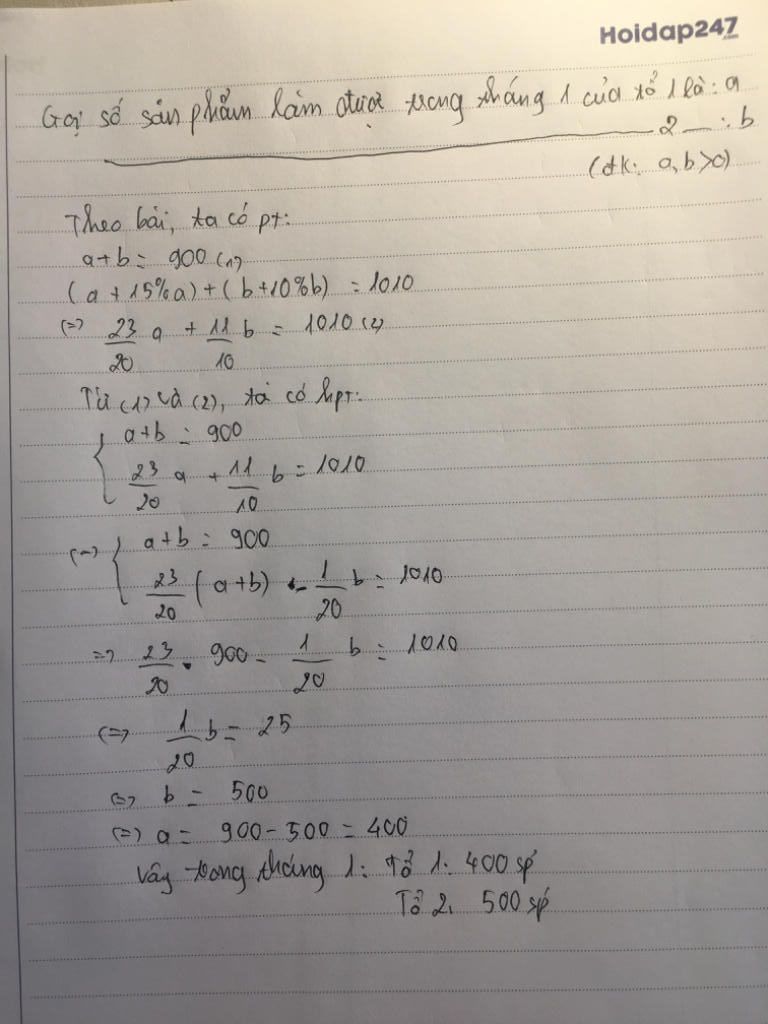 Hoidap247
.com
Gọi số sản phẩm làm được trong tháng 1 của tổ 1 là: a
2 : b
(đk: a, b >0)
Theo bài, ta có pt:
a+b = 900 (1)
(a + 15%a) + (b+10%b) = 1010
(=) 23/20 a + 11/10 b = 1010 (2)
Từ (1) và (2), ta có hpt:
{ a+b = 900
23/20 a + 11/10 b = 1010
(=) { a+b = 900
23/20 (a+b) - 1/20 b = 1010
=> 23/20 . 900 - 1/20 b = 1010
(=) 1/20 b = 25
(=) b = 500
(=) a = 900 - 500 = 400
Vậy trong tháng 1: Tổ 1: 400 sp
Tổ 2: 500 sp